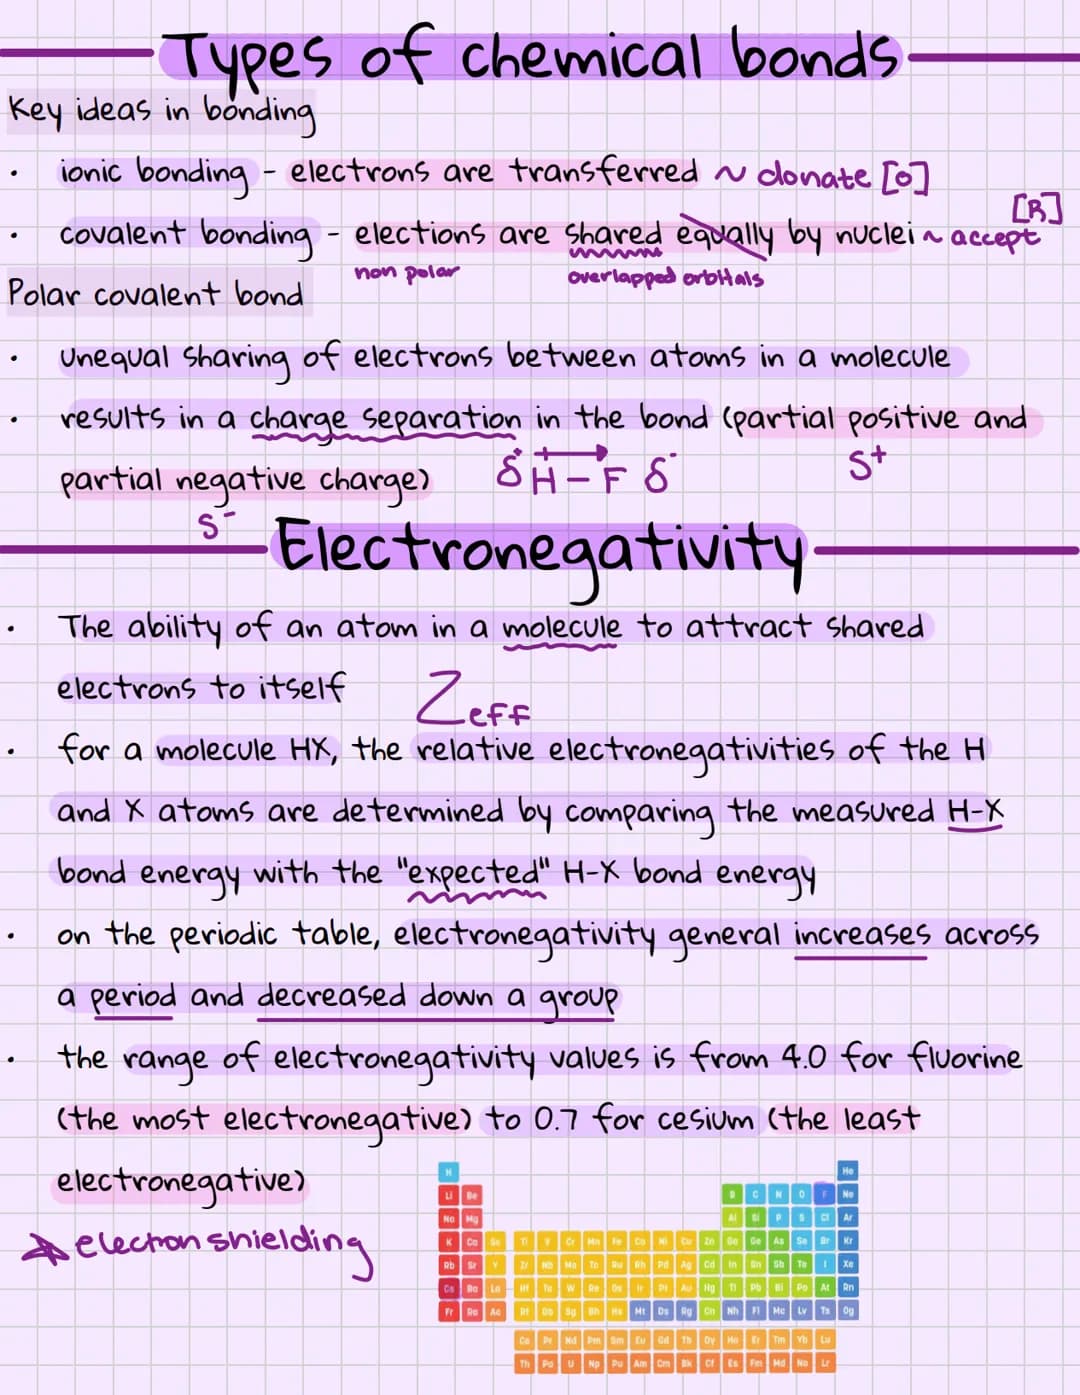 Types of chemical bonds
Key ideas in bonding
• ionic bonding - electrons are transferred ~ donate [O]
[R]
• covalent bonding - elections are shared equally by nuclei ~ accept
non polar overlapped orbitals
Polar covalent bond
• unequal sharing of electrons between atoms in a molecule
• results in a charge separation in the bond (partial positive and
partial negative charge) δ+ H – F δ- S+
S-
Electronegativity
• The ability of an atom in a molecule to attract shared
electrons to itself Zeff
• for a molecule HX, the relative electronegativities of the H
and X atoms are determined by comparing the measured H-X
bond energy with the "expected" H-X bond energy
• on the periodic table, electronegativity general increases across
a period and decreased down a group
• the range of electronegativity values is from 4.0 for fluorine
(the most electronegative) to 0.7 for cesium (the least
electronegative)
electron shielding
H He
Li Be B C N O F Ne
Na Mg Al Si P S Cl Ar
K Ca Sc Ti V Cr Mn Fe Co Ni Cu Zn Ga Ge As Se Br Kr
Rb Sr Y Zr Nb Mo Tc Ru Rh Pd Ag Cd In Sn Sb Te I Xe
Cs Ba La Hf Ta W Re Os Ir Pt Au Hg Tl Pb Bi Po At Rn
Fr Ra Ac Rf Db Sg Bh Hs Mt Ds Rg Cn Nh Fl Mc Lv Ts Og
Ce Pr Nd Pm Sm Eu Gd Tb Dy Ho Er Tm Yb Lu
Th Pa U Np Pu Am Cm Bk Cf Es Fm Md No Lr